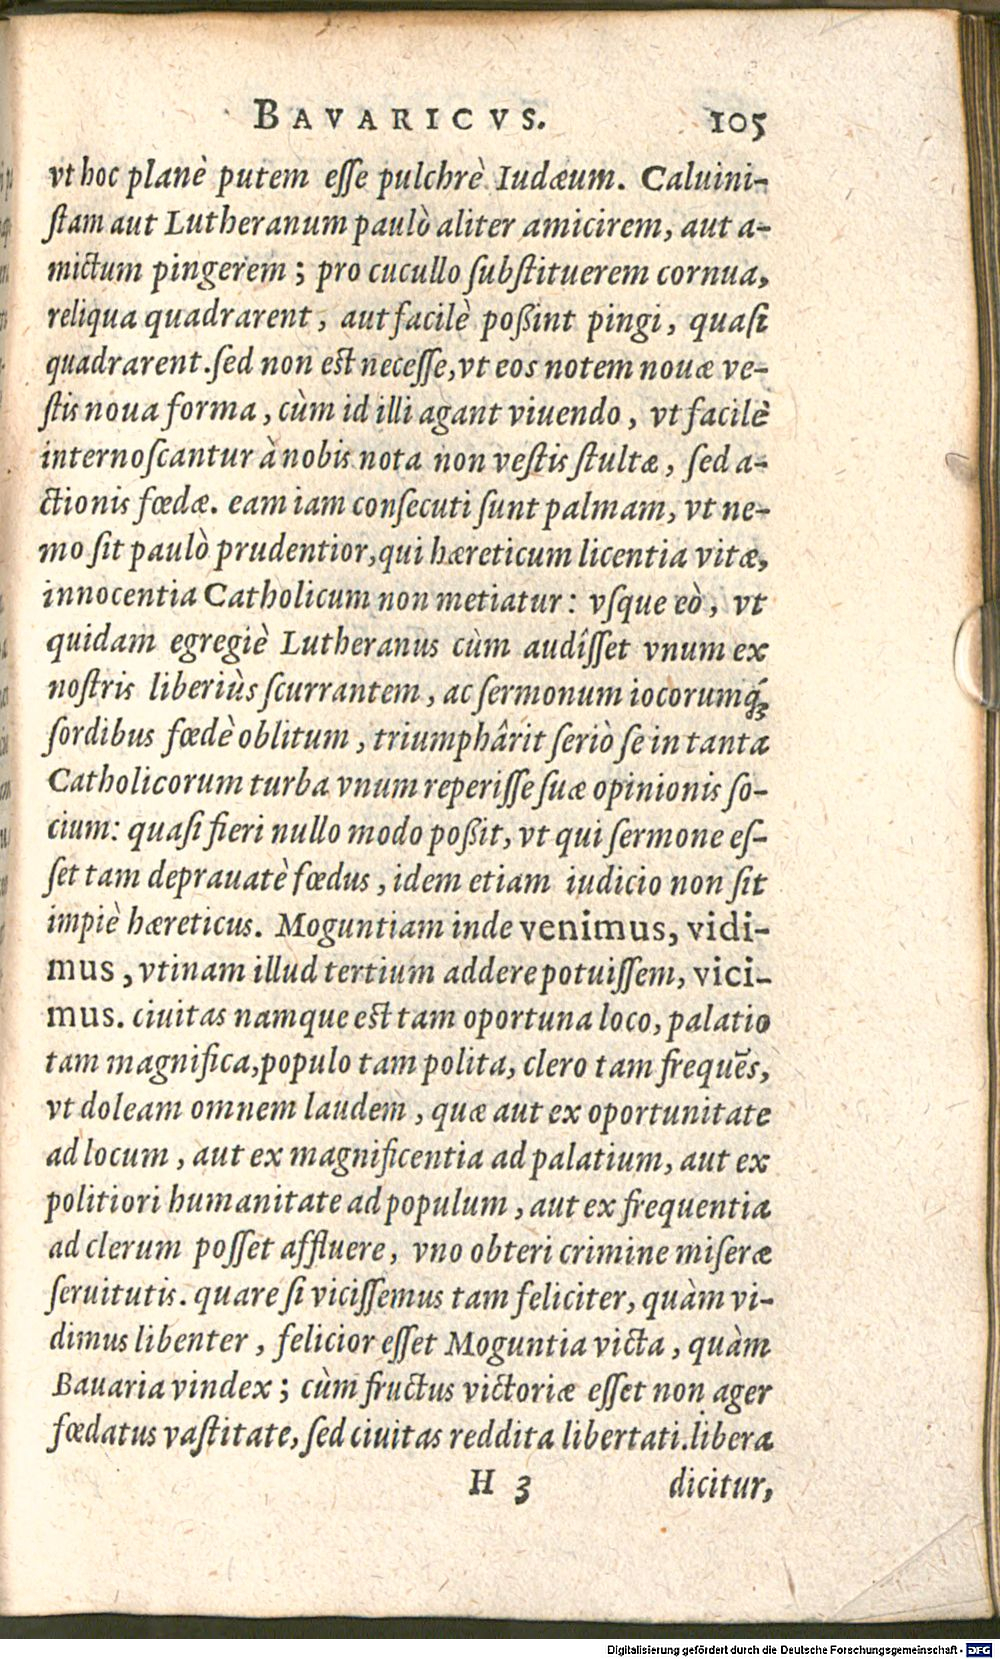 BAVARICVS. 105
vt hoc planè putem esse pulchrè Iudæum. Caluini-
stam aut Lutheranum paulò aliter amicirem, aut a-
mictum pingerem; pro cucullo substituerem cornua,
reliqua quadrarent, aut facilè poßint pingi, quasi
quadrarent. sed non est necesse, vt eos notem nouæ ve-
stis noua forma, cùm id illi agant viuendo, vt facilè
internoscantur à nobis nota non vestis stultæ, sed a-
ctionis fœdæ. eam iam consecuti sunt palmam, vt ne-
mo sit paulò prudentior, qui hæreticum licentia vitæ,
innocentia Catholicum non metiatur: vsque eò, vt
quidam egregiè Lutheranus cùm audîsset vnum ex
nostris liberiùs scurrantem, ac sermonum iocorumq́;
sordibus fœdè oblitum, triumphârit seriò se in tanta
Catholicorum turba vnum reperisse suæ opinionis so-
cium: quasi fieri nullo modo poßit, vt qui sermone es-
set tam deprauatè fœdus, idem etiam iudicio non sit
impiè hæreticus. Moguntiam inde venimus, vidi-
mus, vtinam illud tertium addere potuissem, vici-
mus. ciuitas namque est tam oportuna loco, palatio
tam magnifica, populo tam polita, clero tam frequẽs,
vt doleam omnem laudem, quæ aut ex oportunitate
ad locum, aut ex magnificentia ad palatium, aut ex
politiori humanitate ad populum, aut ex frequentia
ad clerum posset affluere, vno obteri crimine miseræ
seruitutis. quare si vicissemus tam feliciter, quàm vi-
dimus libenter, felicior esset Moguntia victa, quàm
Bauaria vindex; cùm fructus victoriæ esset non ager
fœdatus vastitate, sed ciuitas reddita libertati. libera
H 3 dicitur,
Digitalisierung gefördert durch die Deutsche Forschungsgemeinschaft - DFG